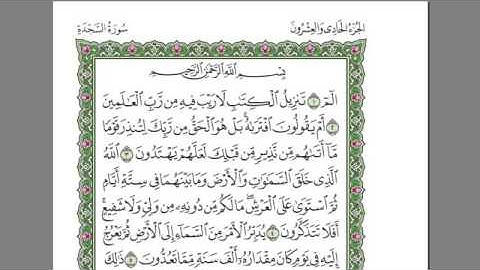 الجزء الحادي والعشرون
سورة السجدة
بِسْمِ اللَّهِ الرَّحْمَٰنِ الرَّحِيمِ
الٓمٓ ۝١ تَنزِيلُ ٱلْكِتَٰبِ لَا رَيْبَ فِيهِ مِن رَّبِّ ٱلْعَٰلَمِينَ
۝٢ أَمْ يَقُولُونَ ٱفْتَرَىٰهُ ۚ بَلْ هُوَ ٱلْحَقُّ مِن رَّبِّكَ لِتُنذِرَ قَوْمًا
مَّآ أَتَىٰهُم مِّن نَّذِيرٍ مِّن قَبْلِكَ لَعَلَّهُمْ يَهْتَدُونَ ۝٣ ٱللَّهُ
ٱلَّذِى خَلَقَ ٱلسَّمَٰوَٰتِ وَٱلْأَرْضَ وَمَا بَيْنَهُمَا فِى سِتَّةِ أَيَّامٍ
ثُمَّ ٱسْتَوَىٰ عَلَى ٱلْعَرْشِ ۖ مَا لَكُم مِّن دُونِهِۦ مِن وَلِىٍّ وَلَا شَفِيعٍ ۚ
أَفَلَا تَتَذَكَّرُونَ ۝٤ يُدَبِّرُ ٱلْأَمْرَ مِنَ ٱلسَّمَآءِ إِلَى ٱلْأَرْضِ ثُمَّ يَعْرُجُ
إِلَيْهِ فِى يَوْمٍ كَانَ مِقْدَارُهُۥٓ أَلْفَ سَنَةٍ مِّمَّا تَعُدُّونَ ۝٥ ذَٰلِكَ